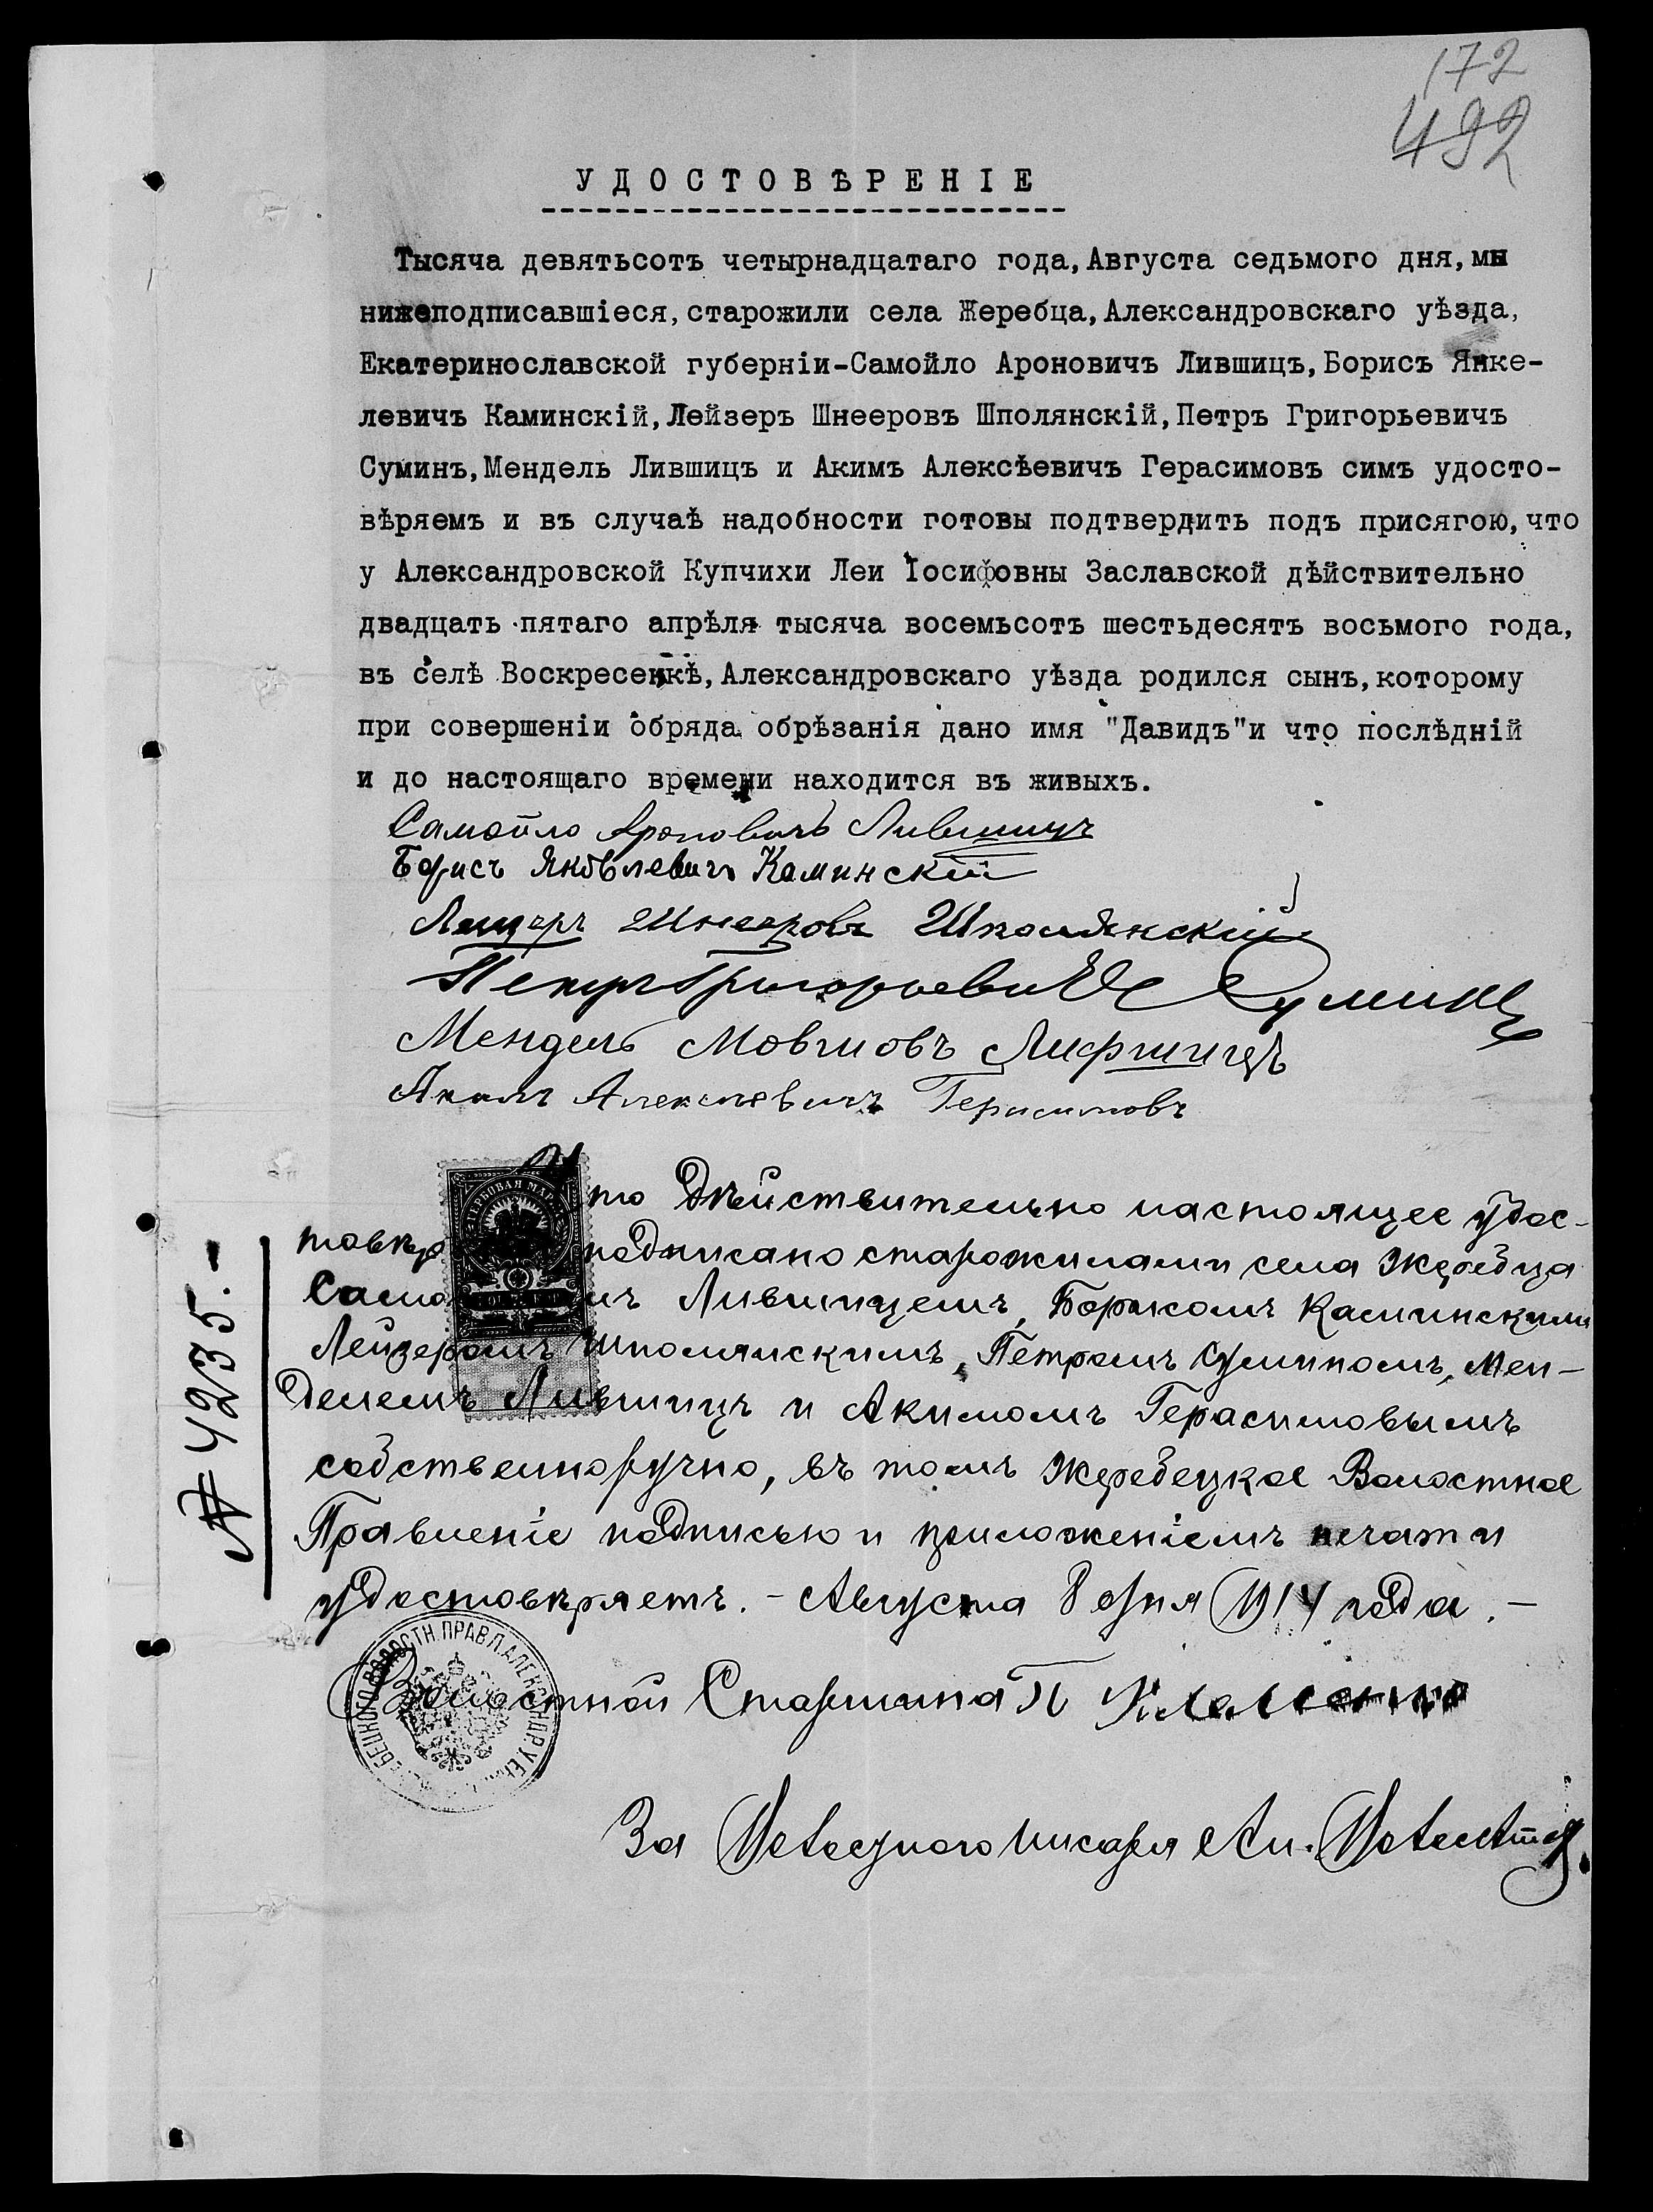 172
492
УДОСТОВѢРЕНІЕ
Тысяча девятьсотъ четырнадцатаго года, Августа седьмого дня, мы
нижеподписавшіеся, старожили села Жеребца, Александровскаго уѣзда,
Екатеринославской губерніи-Самойло Ароновичъ Лившицъ, Борисъ Янке-
левичъ Каминскій, Лейзеръ Шнееровъ Шполянскій, Петръ Григорьевичъ
Суминъ, Мендель Лившицъ и Акимъ Алексѣевичъ Герасимовъ симъ удосто-
вѣряемъ и въ случаѣ надобности готовы подтвердить подъ присягою, что
у Александровской Купчихи Леи Іосифовны Заславской дѣйствительно
двадцать пятаго апрѣля тысяча восемьсотъ шестьдесятъ восьмого года,
въ селѣ Воскресенкѣ, Александровскаго уѣзда родился сынъ, которому
при совершеніи обряда обрѣзанія дано имя "Давидъ" и что послѣдній
и до настоящаго времени находится въ живыхъ.
Самойло Ароновичъ Лившицъ
Борисъ Яковлевичъ Каминскій
Лейзеръ Шнееровъ Шполянскій
Петръ Григорьевичъ Суминъ
Мендель Мовшовъ Лифшицъ
Акимъ Алексѣевичъ Герасимовъ
ГЕРБОВАЯ МАРКА
Что дѣйствительно настоящее удос-
товѣре подписано старожилами села Жеребца
Само мъ Лившицемъ, Борисомъ Каминскимъ
Лейзеромъ Шполянскимъ, Петромъ Суминомъ, Мен-
делемъ Лившицъ и Акимомъ Герасимовымъ
собственноручно, въ томъ Жеребецкое Волостное
Правленіе подписью и приложеніемъ печати
удостовѣряетъ. - Августа 8 дня 1914 года. -
№ 4235. -
Волостной Старшина П
БЕЦКОЕ ВОЛОСТН. ПРАВЛ. АЛЕКСАНДР. У. ЕК
За Волостного Писаря Ан.